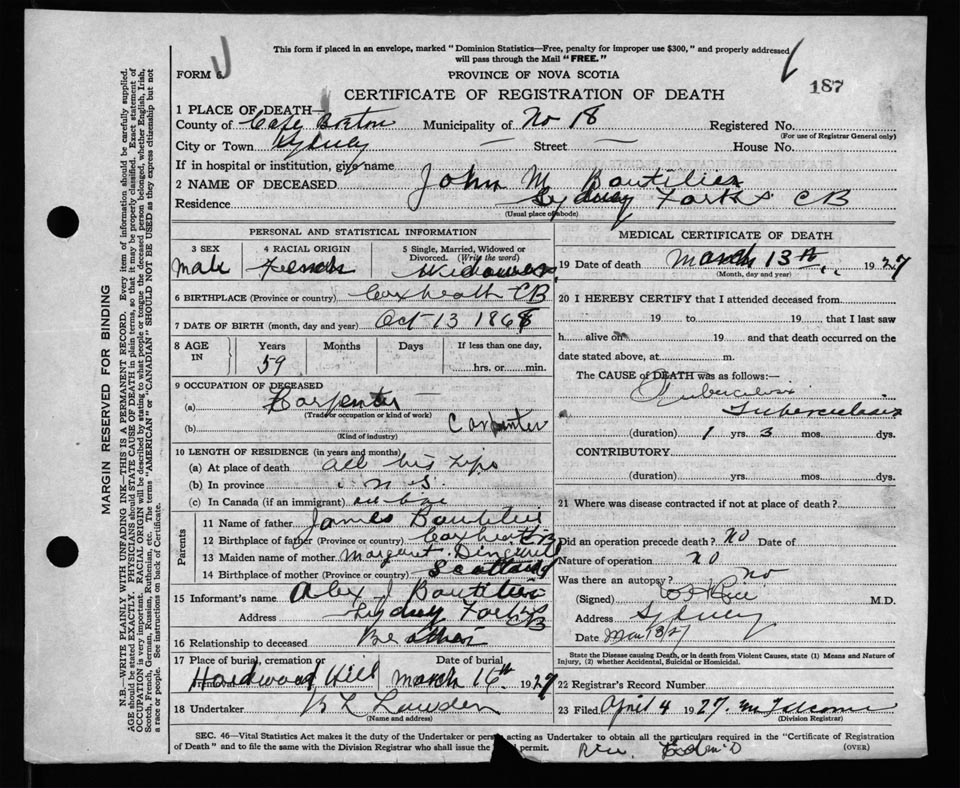 This form if placed in an envelope, marked "Dominion Statistics—Free, penalty for improper use $300," and properly addressed
will pass through the Mail "FREE."
FORM 6
PROVINCE OF NOVA SCOTIA
187
CERTIFICATE OF REGISTRATION OF DEATH
1 PLACE OF DEATH—
County of Cape Breton Municipality of No 18 Registered No.
(For use of Registrar General only)
City or Town Sydney — Street — House No.
If in hospital or institution, give name
2 NAME OF DECEASED John M Boutilier
Residence Sydney Forks CB
(Usual place of abode)
PERSONAL AND STATISTICAL INFORMATION
3 SEX Male
4 RACIAL ORIGIN French
5 Single, Married, Widowed or Divorced. (Write the word) Widower
6 BIRTHPLACE (Province or country) Coxheath CB
7 DATE OF BIRTH (month, day and year) Oct 13 1868
8 AGE IN Years Months Days If less than one day,
59 hrs. or min.
9 OCCUPATION OF DECEASED
(a) Carpenter
(Trade or occupation or kind of work)
(b) Carpenter
(Kind of industry)
10 LENGTH OF RESIDENCE (in years and months)
(a) At place of death all his
(b) In province N S
(c) In Canada (if an immigrant)
Parents
11 Name of father James Boutilier
12 Birthplace of father (Province or country) Coxheath CB
13 Maiden name of mother Margaret
14 Birthplace of mother (Province or country) Scotland
15 Informant's name Alex J Boutilier
Address Sydney Forks CB
16 Relationship to deceased Brother
17 Place of burial, cremation or removal Date of burial
Hardwood Hill March 16th 1927
18 Undertaker
(Name and address)
MEDICAL CERTIFICATE OF DEATH
19 Date of death March 13th 1927
(Month, day and year)
20 I HEREBY CERTIFY that I attended deceased from
19 to 19 that I last saw
h alive on 19 and that death occurred on the
date stated above, at m.
The CAUSE of DEATH was as follows:—
Tuberculosis
(duration) 1 yrs. 3 mos. dys.
CONTRIBUTORY
(duration) yrs. mos. dys.
21 Where was disease contracted if not at place of death?
Did an operation precede death? no Date of
Nature of operation no
Was there an autopsy? no
(Signed) M.D.
Address Sydney
Date
State the Disease causing Death, or in death from Violent Causes, state (1) Means and Nature of
Injury, (2) whether Accidental, Suicidal or Homicidal.
22 Registrar's Record Number
23 Filed April 4 1927.
(Division Registrar)
SEC. 46—Vital Statistics Act makes it the duty of the Undertaker or person acting as Undertaker to obtain all the particulars required in the "Certificate of Registration
of Death" and to file the same with the Division Registrar who shall issue the permit.
(OVER)
MARGIN RESERVED FOR BINDING
N.B.—WRITE PLAINLY WITH UNFADING INK—THIS IS A PERMANENT RECORD. Every item of information should be carefully supplied.
AGE should be stated EXACTLY. PHYSICIANS should STATE CAUSE OF DEATH in plain terms, so that it may be properly classified. Exact statement of
OCCUPATION is very important. RACIAL ORIGIN will be described by stating to what people or tongue the deceased person belonged, whether English, Irish,
Scotch, French, German, Russian, Ruthenian, etc. The terms "AMERICAN" or "CANADIAN" SHOULD NOT BE USED as they express citizenship but not
a race or people. See instructions on back of Certificate.